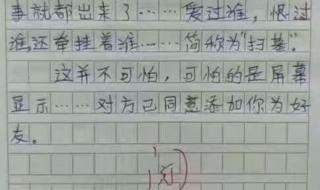 事就都出来了……爱过谁，恨过
谁，还牵挂着谁……简称为“扫墓”。
这并不可怕，可怕的是屏幕
显示……对方已同意添加你为好
友。
阅